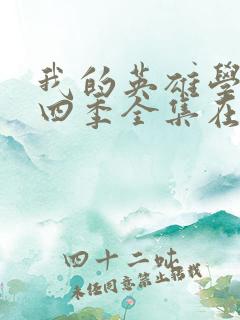 我的英雄學
四季全集在
四十二蚘
未经同意禁止转载